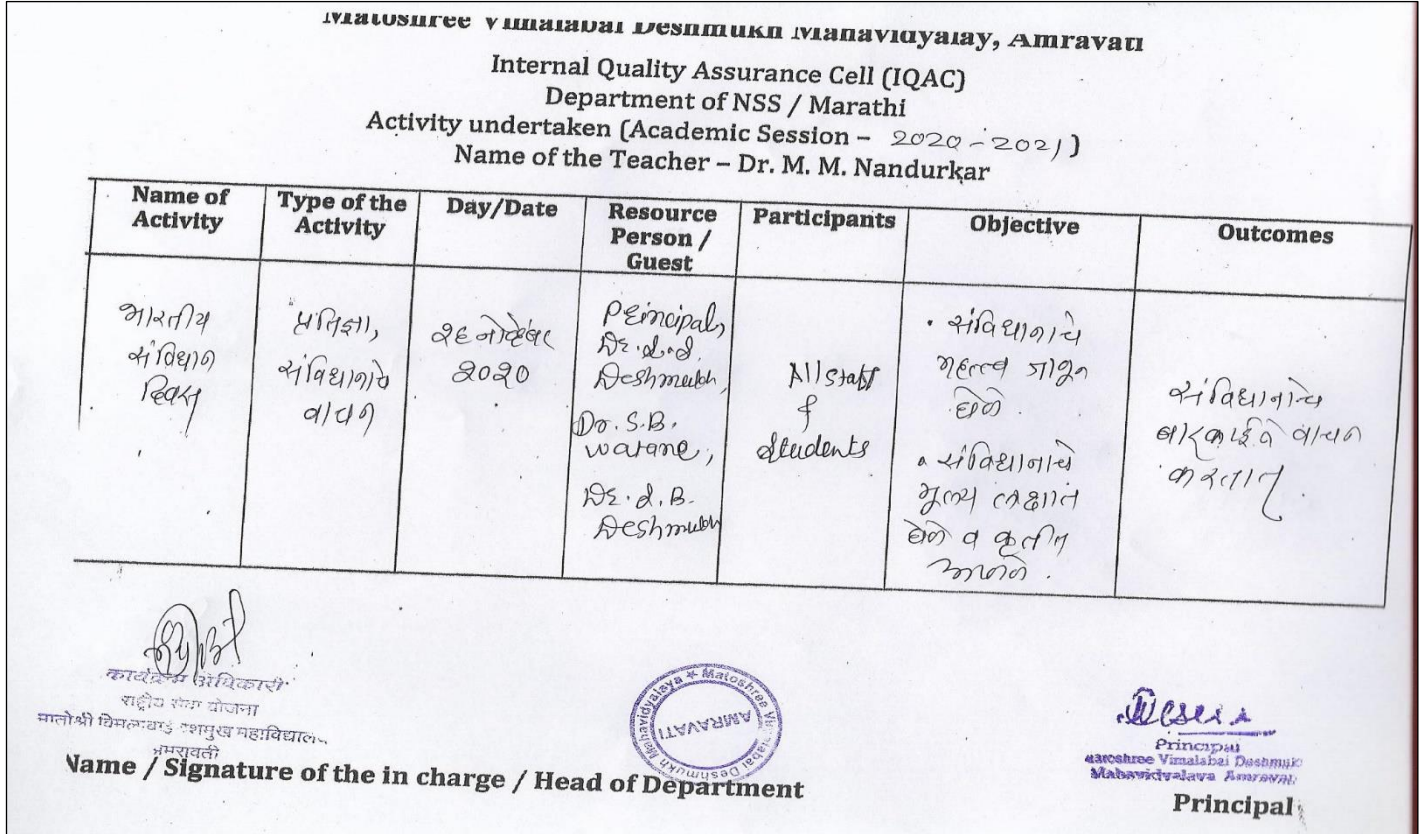 Matoshree Vimalabai Deshmukh Mahavidyalay, Amravati
Internal Quality Assurance Cell (IQAC)
Department of NSS / Marathi
Activity undertaken (Academic Session – 2020-2021)
Name of the Teacher – Dr. M. M. Nandurkar
Name of
Activity
Type of the
Activity
Day/Date
Resource
Person /
Guest
Participants
Objective
Outcomes
भारतीय
संविधान
दिवस
प्रतिज्ञा,
संविधानाचे
वाचन
२६ नोव्हेंबर
२०२०
Principal,
Dr.
Deshmukh,
Dr. S.B.
warane,
Dr. S.B.
Deshmukh
All staff
&
students
• संविधानाचे
महत्त्व जाणून
घेणे.
• संविधानाचे
मूल्य लक्षात
घेणे व कृतीत
आणणे.
संविधानाचे
बारकाईने वाचन
करतात.
कार्यक्रम अधिकारी
राष्ट्रीय सेवा योजना
मातोश्री विमलाबाई देशमुख महाविद्यालय
अमरावती
Name / Signature of the in charge / Head of Department
Matoshree Vimalabai Deshmukh Mahavidyalaya
AMRAVATI
Principal
Matoshree Vimalabai Deshmukh
Mahavidyalaya Amravati
Principal